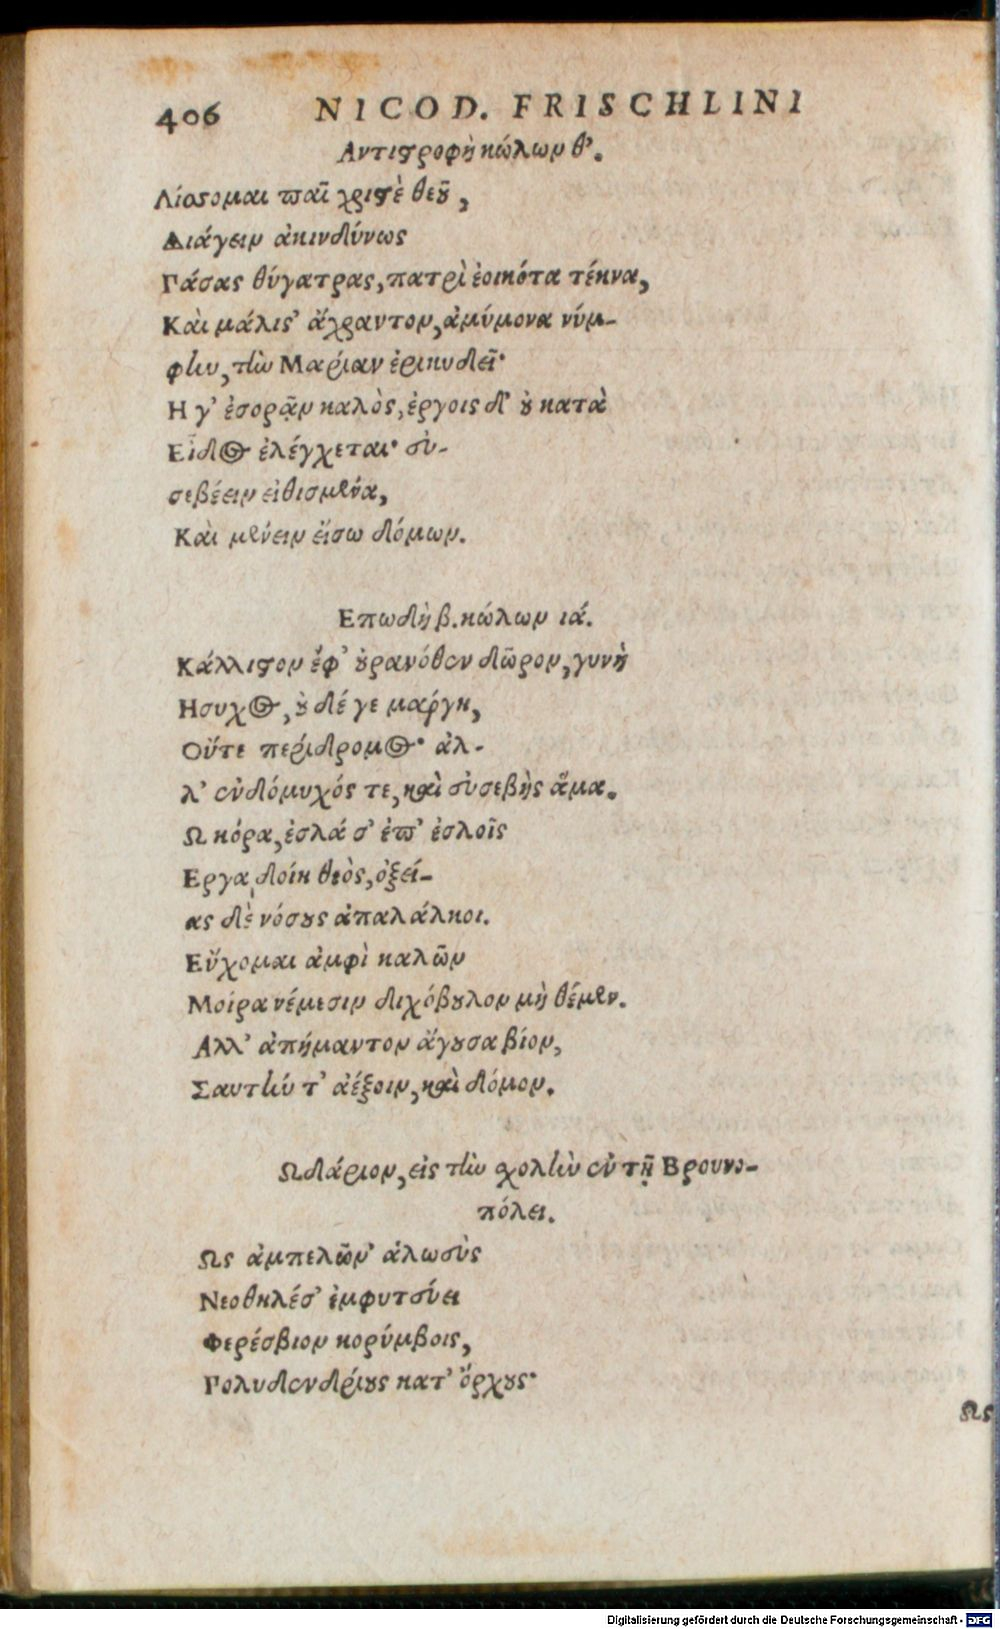 406 NICOD. FRISCHLINI
Αντιϛροφὴ κώλων θ'.
Λίασομαι παῖ χριϛὲ θεοῦ,
Διάγειν ἀκινδύνως
Πάσας θύγατρας, πατρὶ ἐοικότα τέκνα,
Καὶ μάλιϛ' ἄχραντον, ἀμύμονα νύμ-
φίω, τίω Μαρίαν ἐρικυδεῖ·
Η γ' ἐσορᾷν καλὸς, ἐργοις δ' οὐ κατὰ
Εἶδος ἐλέγχεται· εὐ-
σεβέειν εἰθισμένα,
Καὶ μένειν εἴσω δόμων.
Επωδὴ β. κώλων ιά.
Κάλλιϛον ἔφ' οὐρανόθεν δῶρον, γυνὴ
Ησυχος, οὐδέ γε μαργη,
Οὔτε περίδρομος· ἀλ-
λ' ἐνδόμυχός τε, καὶ εὐσεβὴς ἅμα.
Ω κόρα, ἐσλά σ' ἐπ' ἐσλοῖς
Εργα δοίη θεὸς, ὀξεί-
ας δὲ νόσους ἀπαλάλκοι.
Εὔχομαι ἀμφὶ καλῶν
Μοίρα νέμεσιν διχόβουλον μὴ θέμεν.
Αλλ' ἀπήμαντον ἄγουσα βίον,
Σαυτίω τ' ἀέξοιν, καὶ δόμον.
Ωδάριον, εἰς τίω χολίω ἐν τῇ Βρουνο-
πόλει.
Ως ἀμπελῶν' ἀλωεὺς
Νεοθηλέσ' ἐμφυτεύει
Φερέσβιον κορύμβοις,
Πολυδενδρίους κατ' ὄρχους·
Ως
Digitalisierung gefördert durch die Deutsche Forschungsgemeinschaft - DFG